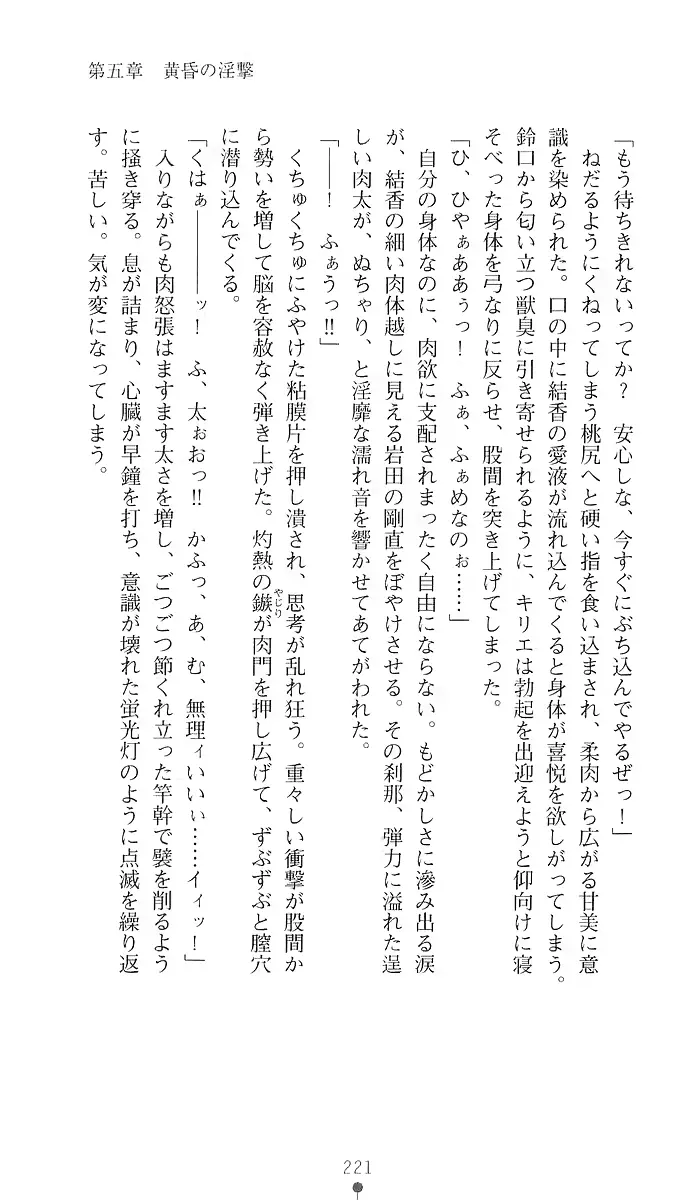 第五章　黄昏の淫撃
「もう待ちきれないってか？　安心しな、今すぐにぶち込んでやるぜっ！」
　ねだるようにくねってしまう桃尻へと硬い指を食い込まされ、柔肉から広がる甘美に意
識を染められた。口の中に結香の愛液が流れ込んでくると身体が喜悦を欲しがってしまう。
鈴口から匂い立つ獣臭に引き寄せられるように、キリエは勃起を出迎えようと仰向けに寝
そべった身体を弓なりに反らせ、股間を突き上げてしまった。
「ひ、ひやぁああぅっ！　ふぁ、ふぁめなのぉ……」
　自分の身体なのに、肉欲に支配されまったく自由にならない。もどかしさに滲み出る涙
が、結香の細い肉体越しに見える岩田の剛直をぼやけさせる。その刹那、弾力に溢れた逞
しい肉太が、ぬちゃり、と淫靡な濡れ音を響かせてあてがわれた。
「――！　ふぁうっ‼」
　くちゅくちゅにふやけた粘膜片を押し潰され、思考が乱れ狂う。重々しい衝撃が股間か
ら勢いを増して脳を容赦なく弾き上げた。灼熱の鏃やじりが肉門を押し広げて、ずぶずぶと膣穴
に潜り込んでくる。
「くはぁ――――ッ！　ふ、太ぉおっ‼　かふっ、あ、む、無理ィいいぃ……イィッ！」
　入りながらも肉怒張はますます太さを増し、ごつごつ節くれ立った竿幹で襞を削るよう
に掻き穿る。息が詰まり、心臓が早鐘を打ち、意識が壊れた蛍光灯のように点滅を繰り返
す。苦しい。気が変になってしまう。
221